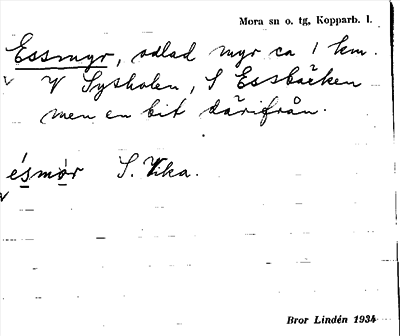 Mora sn o. tg, Kopparb. l.
Essmyr, odlad myr ca 1 km.
V Sysholen, S Essbäcken
men en bit därifrån.
ésmọr S. Vika.
Bror Lindén 1934